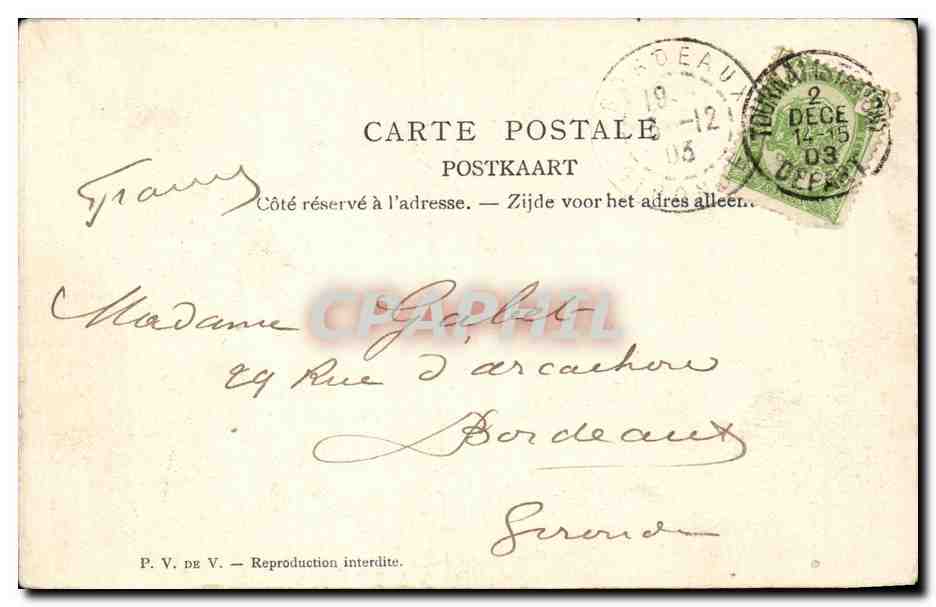 BORDEAUX
19
-12
03
GIRONDE
TOURNAI (STATION)
2
DECE
14-15
03
DEPART
CARTE POSTALE
POSTKAART
Côté réservé à l'adresse. — Zijde voor het adres alleen.
France
CPAPHIL
Madame Gabet
29 Rue d'arcachon
Bordeaux
Gironde
P. V. DE V. — Reproduction interdite.